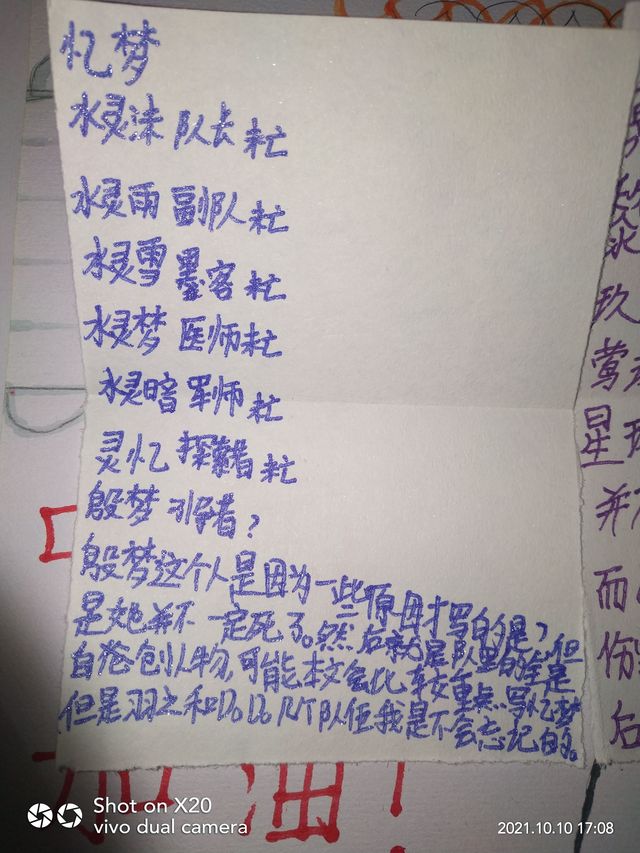 忆梦
水灵沫 队长 未亡
水灵雨 副队 未亡
水灵雪 墨客 未亡
水灵梦 医师 未亡
水灵暗 军师 未亡
灵忆 探索者 未亡
殷梦 引导者?
殷梦这个人是因为一些原因才写的是?
但是她并不一定死了。然后就是队里的全是
自爸创人物,可能本文会比较重点写忆梦
但是羽之和 队伍我是不会忘记的。
玖
莺
星
并
而
份
后
加油!
Shot on X20
vivo dual camera
2021.10.10 17:08